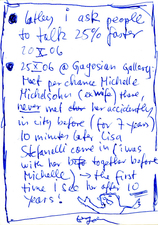 latley, i ask people
to talk 25% faster
20 X 06
25 X 06 @ Gagosian Gallery:
Met per chance Michelle
Michelsohn (ex wife) there,
never met her accidently
in city before (for 7 years)
10 minutes later Lisa
Stefanelli come in (i was
with her together before
Michelle) → the first
time I see her after 10
years!